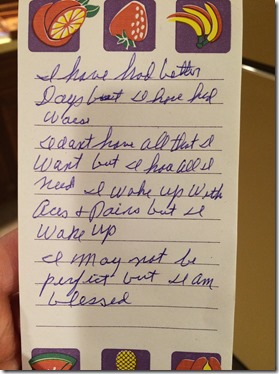 I have had better
Days but I have had
Worse
I dont have all that I
Want but I have all I
Need I Wake up With
Aces & Pains but I
Wake Up
I May not be
perfect but I am
blessed